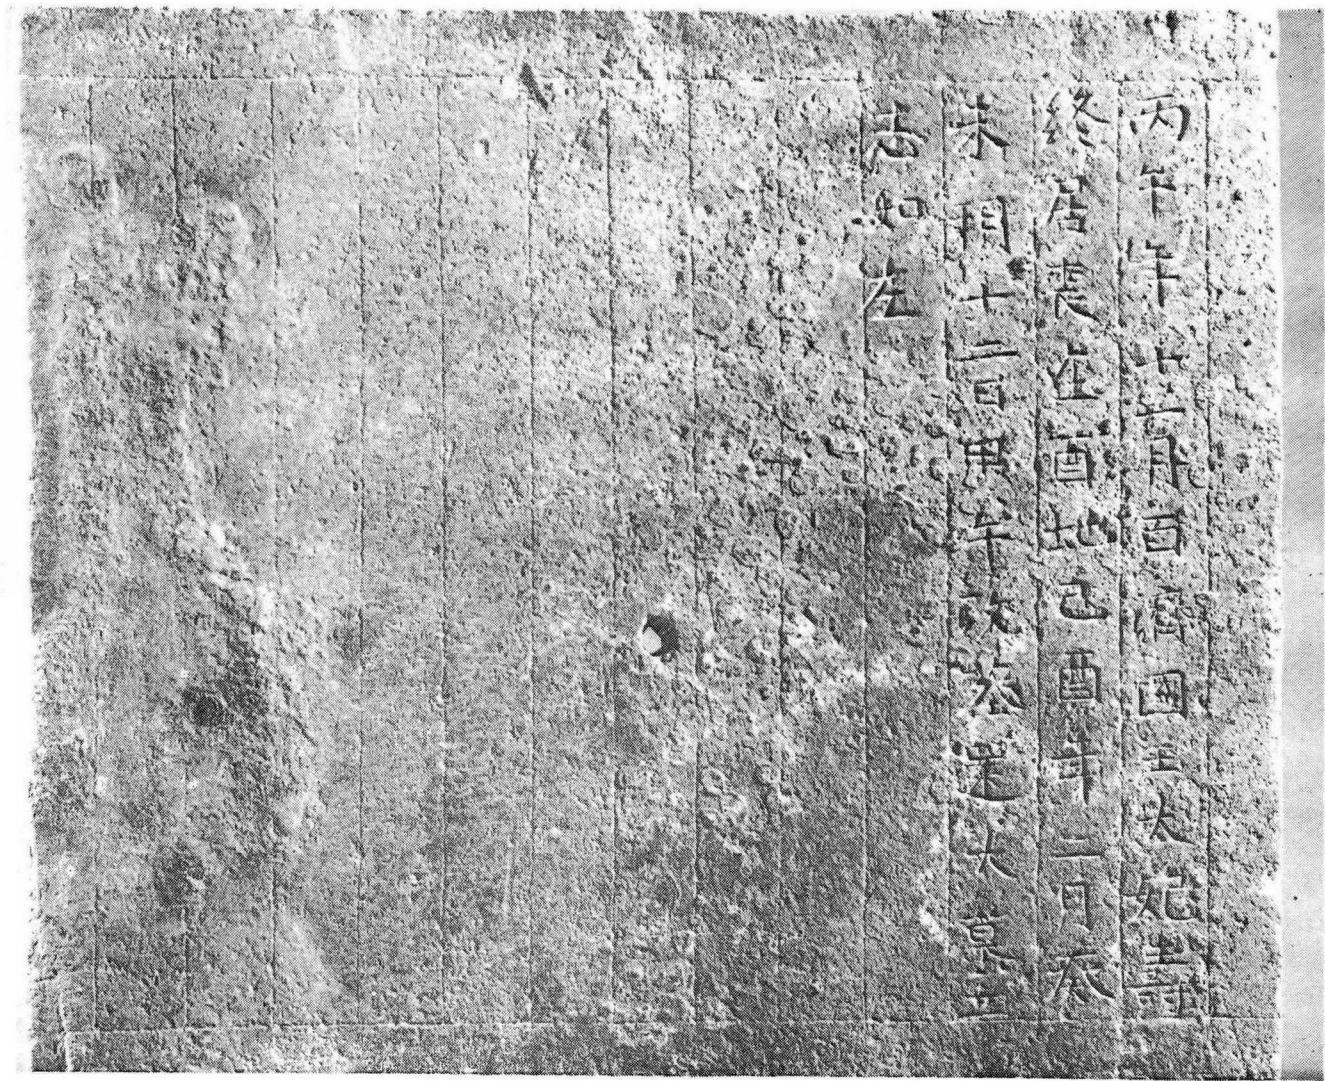 丙午年十二月百濟國王大妃壽
終居喪在酉地己酉年二月癸
未朔十二日甲午改葬還大墓立
志如左